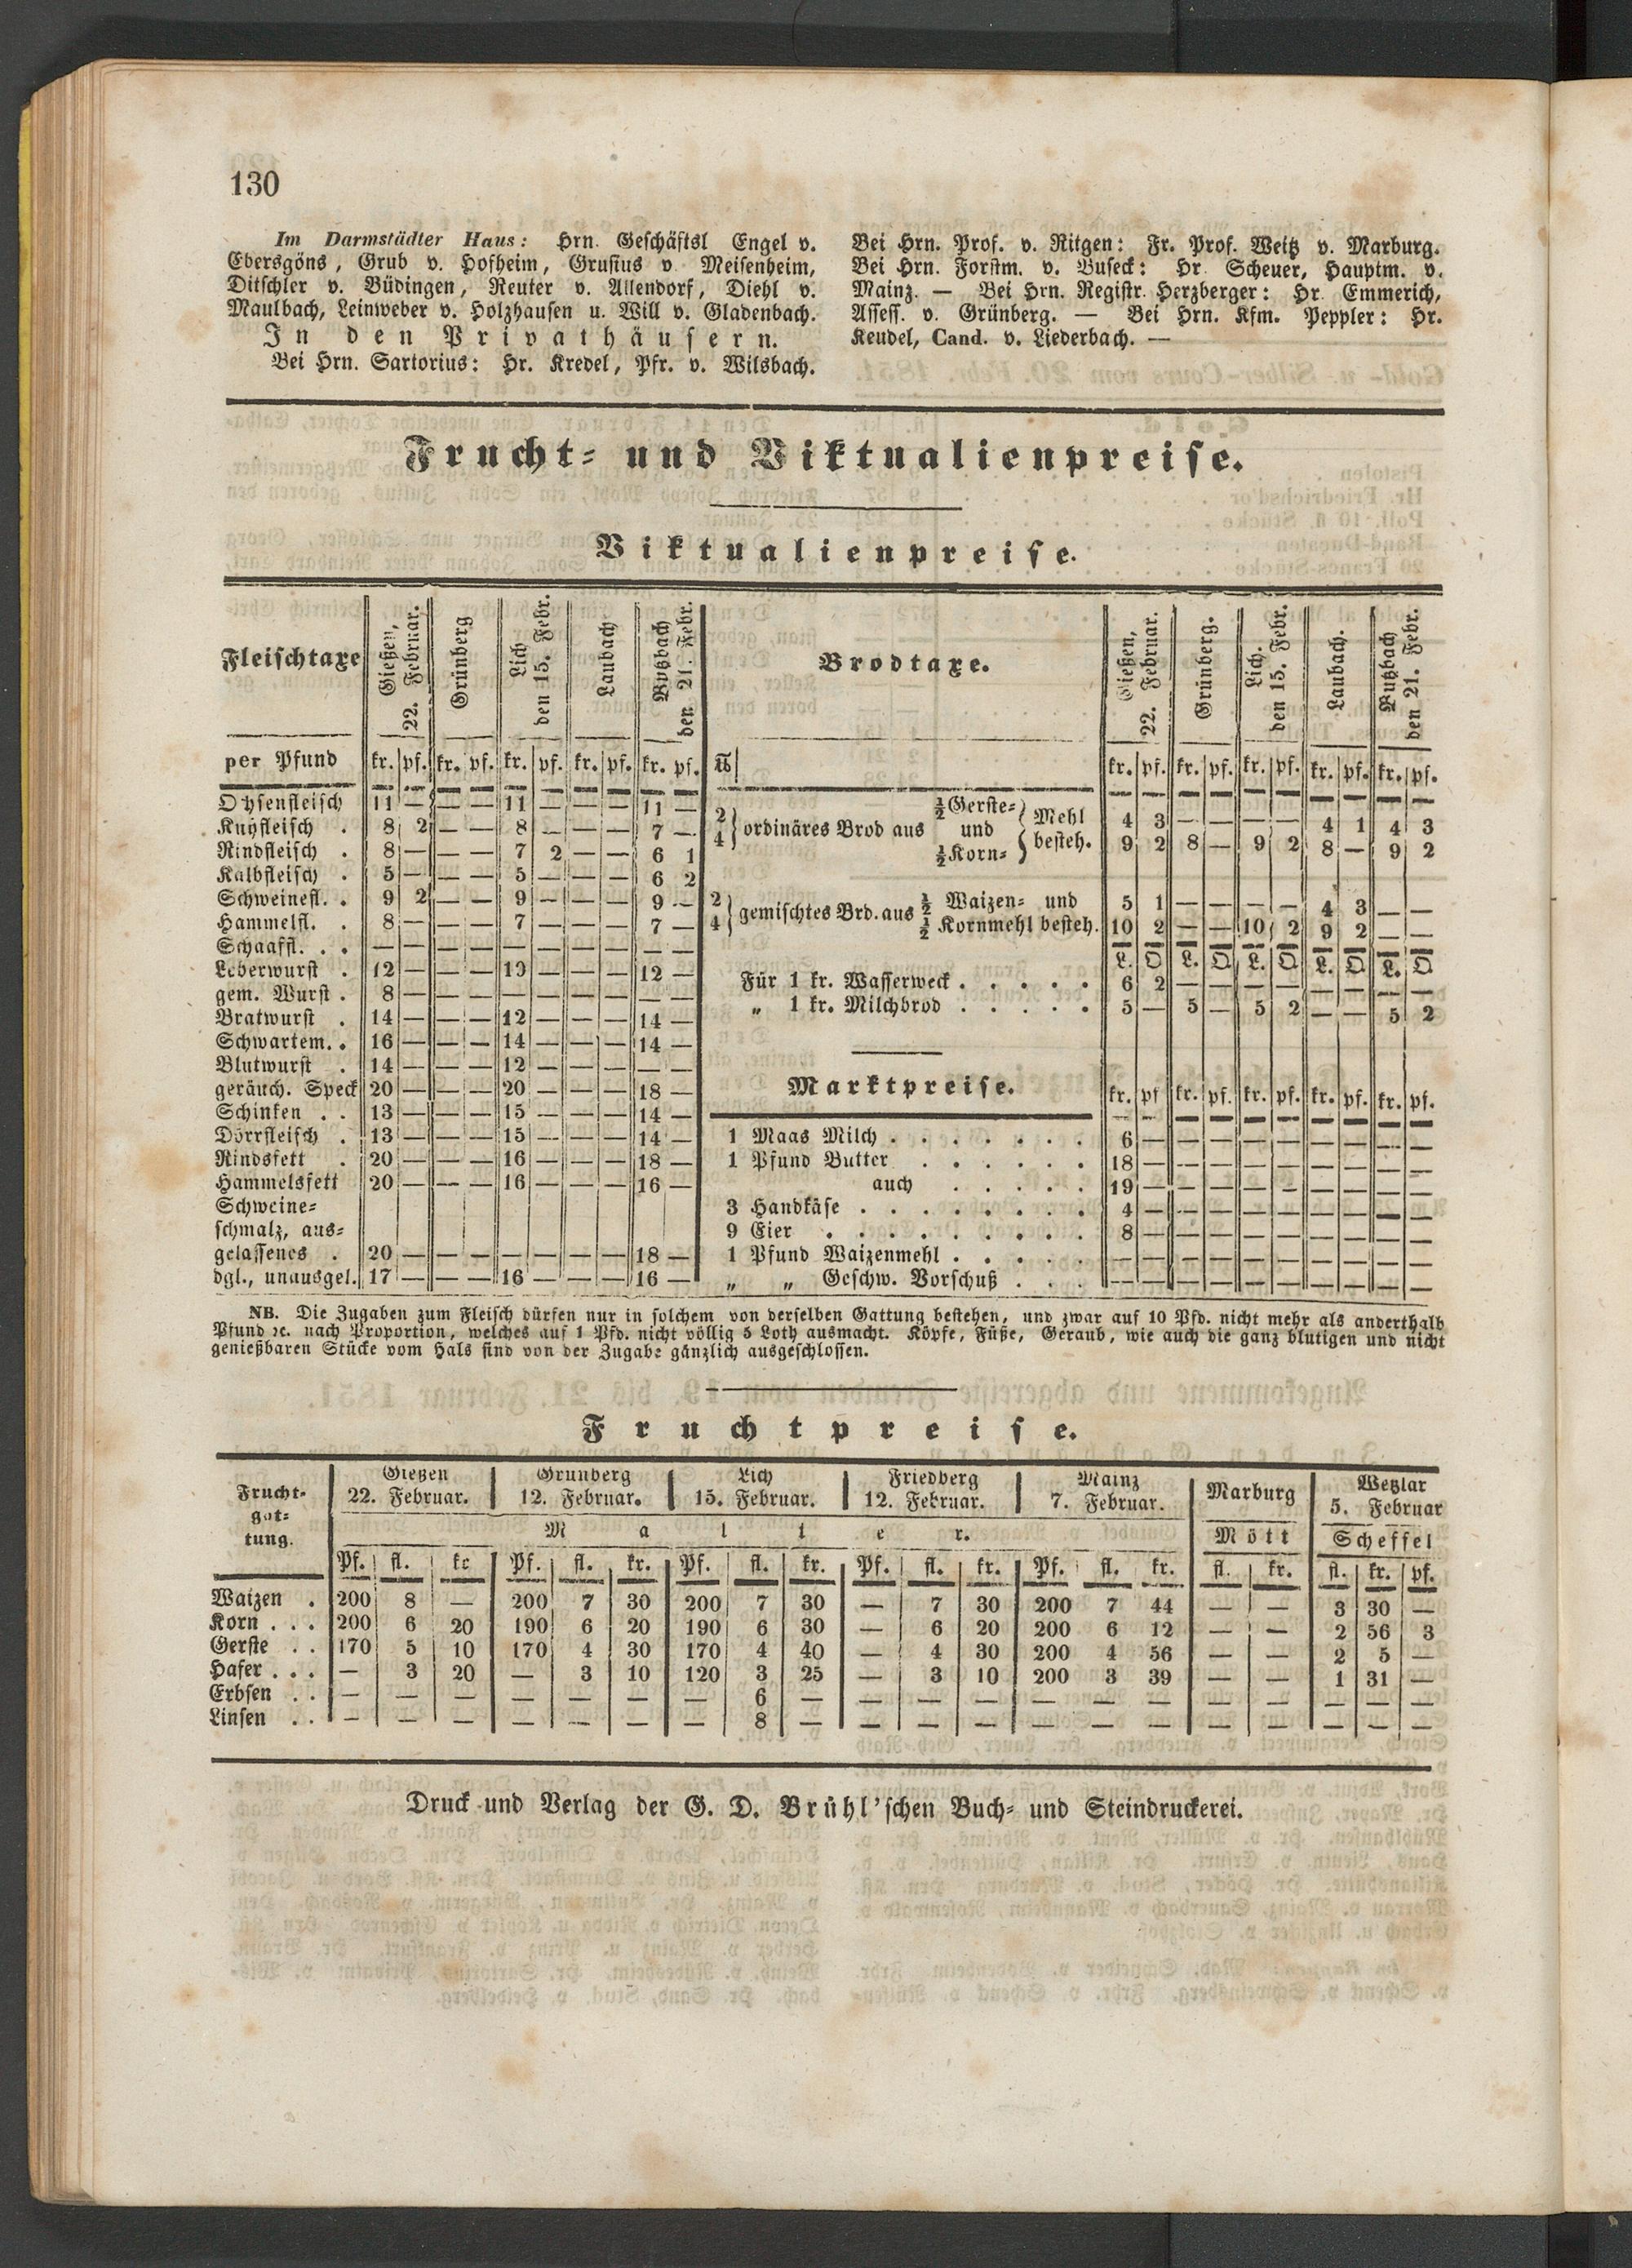 130
Im Darmstädter Haus: Hrn. Geschäftsl Engel v.
Ebersgöns, Grub v. Hofheim, Grusius v. Meisenheim,
Ditschler v. Büdingen, Reuter v. Allendorf, Diehl v.
Maulbach, Leinweber v. Holzhausen u. Will v. Gladenbach.
In den Privathäusern.
Bei Hrn. Sartorius: Hr. Kredel, Pfr. v. Wilsbach.
Bei Hrn. Prof. v. Ritgen: Fr. Prof. Weitz v. Marburg.
Bei Hrn. Forstm. v. Buseck: Hr. Scheuer, Hauptm. v.
Mainz. — Bei Hrn. Registr. Herzberger: Hr. Emmerich,
Assess. v. Grünberg. — Bei Hrn. Kfm. Peppler: Hr.
Keudel, Cand. v. Liederbach. —
Frucht- und Viktualienpreise.
Viktualienpreise.
Fleischtaxe | Gießen, 22. Februar. | Grünberg | Lich den 15. Febr. | Laubach | Butzbach den 21. Febr.
per Pfund | kr. | pf. | kr. | pf. | kr. | pf. | kr. | pf. | kr. | pf.
Ochsenfleisch 11 — — — 11 — — — 11 —
Kuhfleisch . 8 2 — — 8 — — — 7 —
Rindfleisch . 8 — — — 7 2 — — 6 1
Kalbfleisch . 5 — — — 5 — — — 6 2
Schweinefl. . 9 2 — — 9 — — — 9 —
Hammelfl. . 8 — — — 7 — — — 7 —
Schaaffl. . . — — — — — — — — — —
Leberwurst . 12 — — — 13 — — — 12 —
gem. Wurst . 8 — — — — — — — — —
Bratwurst . 14 — — — 12 — — — 14 —
Schwartem. . 16 — — — 14 — — — 14 —
Blutwurst . 14 — — — 12 — — — — —
geräuch. Speck 20 — — — 20 — — — 18 —
Schinken . . 13 — — — 15 — — — 14 —
Dörrfleisch . 13 — — — 15 — — — 14 —
Rindsfett . 20 — — — 16 — — — 18 —
Hammelsfett 20 — — — 16 — — — 16 —
Schweine-
schmalz, aus-
gelassenes . 20 — — — — — — — 18 —
dgl., unausgel. 17 — — — 16 — — — 16 —
Brodtaxe. | Gießen, 22. Februar. | Grünberg. | Lich. den 15. Febr. | Laubach. | Butzbach den 21. Febr.
℔ | kr. | pf. | kr. | pf. | kr. | pf. | kr. | pf. | kr. | pf.
2 } ordinäres Brod aus ½ Gerste- und } Mehl 4 3 — — — — 4 1 4 3
4 } ½ Korn- } besteh. 9 2 8 — 9 2 8 — 9 2
2 } gemischtes Brd. aus ½ Waizen- und 5 1 — — — — 4 3 — —
4 } ½ Kornmehl besteh. 10 2 — — 10 2 9 2 — —
L. Q L. Q L. Q L. Q L. Q
Für 1 kr. Wasserweck . . . . . 6 2 — — — — — — — —
„ 1 kr. Milchbrod . . . . . 5 — 5 — 5 2 — — 5 2
Marktpreise. | kr. | pf | kr. | pf. | kr. | pf. | kr. | pf. | kr. | pf.
1 Maas Milch . . . . . . . 6 — — — — — — — — —
1 Pfund Butter . . . . . . 18 — — — — — — — — —
auch . . . . . 19 — — — — — — — — —
3 Handkäse . . . . . . . . 4 — — — — — — — — —
9 Eier . . . . . . . . . 8 — — — — — — — — —
1 Pfund Waizenmehl . . . . . — — — — — — — — — —
„ „ Geschw. Vorschuß . . . — — — — — — — — — —
NB. Die Zugaben zum Fleisch dürfen nur in solchem von derselben Gattung bestehen, und zwar auf 10 Pfd. nicht mehr als anderthalb
Pfund ꝛc. nach Proportion, welches auf 1 Pfd. nicht völlig 5 Loth ausmacht. Köpfe, Füße, Geraub, wie auch die ganz blutigen und nicht
genießbaren Stücke vom Hals sind von der Zugabe gänzlich ausgeschlossen.
Fruchtpreise.
Frucht-gat-tung. | Gießen 22. Februar. | Grünberg 12. Februar. | Lich 15. Februar. | Friedberg 12. Februar. | Mainz 7. Februar. | Marburg | Wetzlar 5. Februar
Malter. | Mött | Scheffel
Pf. | fl. | kr | Pf. | fl. | kr. | Pf. | fl. | kr. | Pf. | fl. | kr. | Pf. | fl. | kr. | fl. | kr. | fl. | kr. | pf.
Waizen . 200 8 — 200 7 30 200 7 30 — 7 30 200 7 44 — — 3 30 —
Korn . . . 200 6 20 190 6 20 190 6 30 — 6 20 200 6 12 — — 2 56 3
Gerste . . 170 5 10 170 4 30 170 4 40 — 4 30 200 4 56 — — 2 5 —
Hafer . . . — 3 20 — 3 10 120 3 25 — 3 10 200 3 39 — — 1 31 —
Erbsen . . — — — — — — — 6 — — — — — — — — — — — —
Linsen . . — — — — — — — 8 — — — — — — — — — — — —
Druck und Verlag der G. D. Brühl'schen Buch- und Steindruckerei.